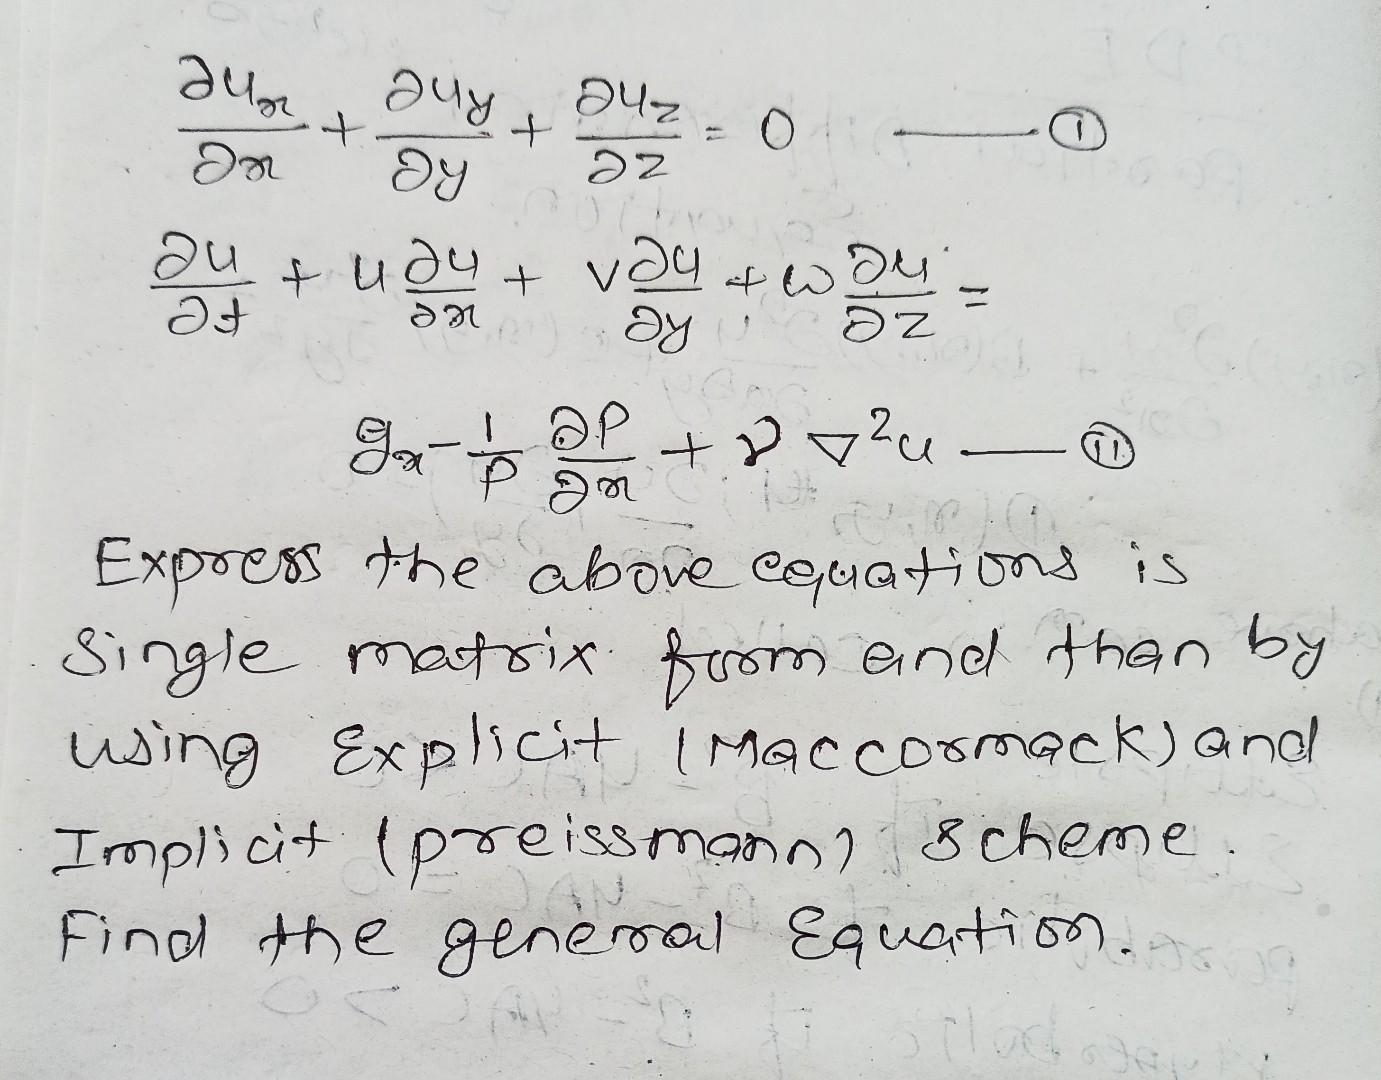 ∂uₓ/∂x + ∂uy/∂y + ∂uz/∂z = 0 —— ①
∂u/∂t + u ∂u/∂x + v ∂u/∂y + w ∂u/∂z =
gₓ - 1/ρ ∂P/∂x + ν ∇²u —— ⑪
Express the above equations is
single matrix form and than by
using Explicit (Maccormack) and
Implicit (preissmann) scheme.
Find the general Equation.